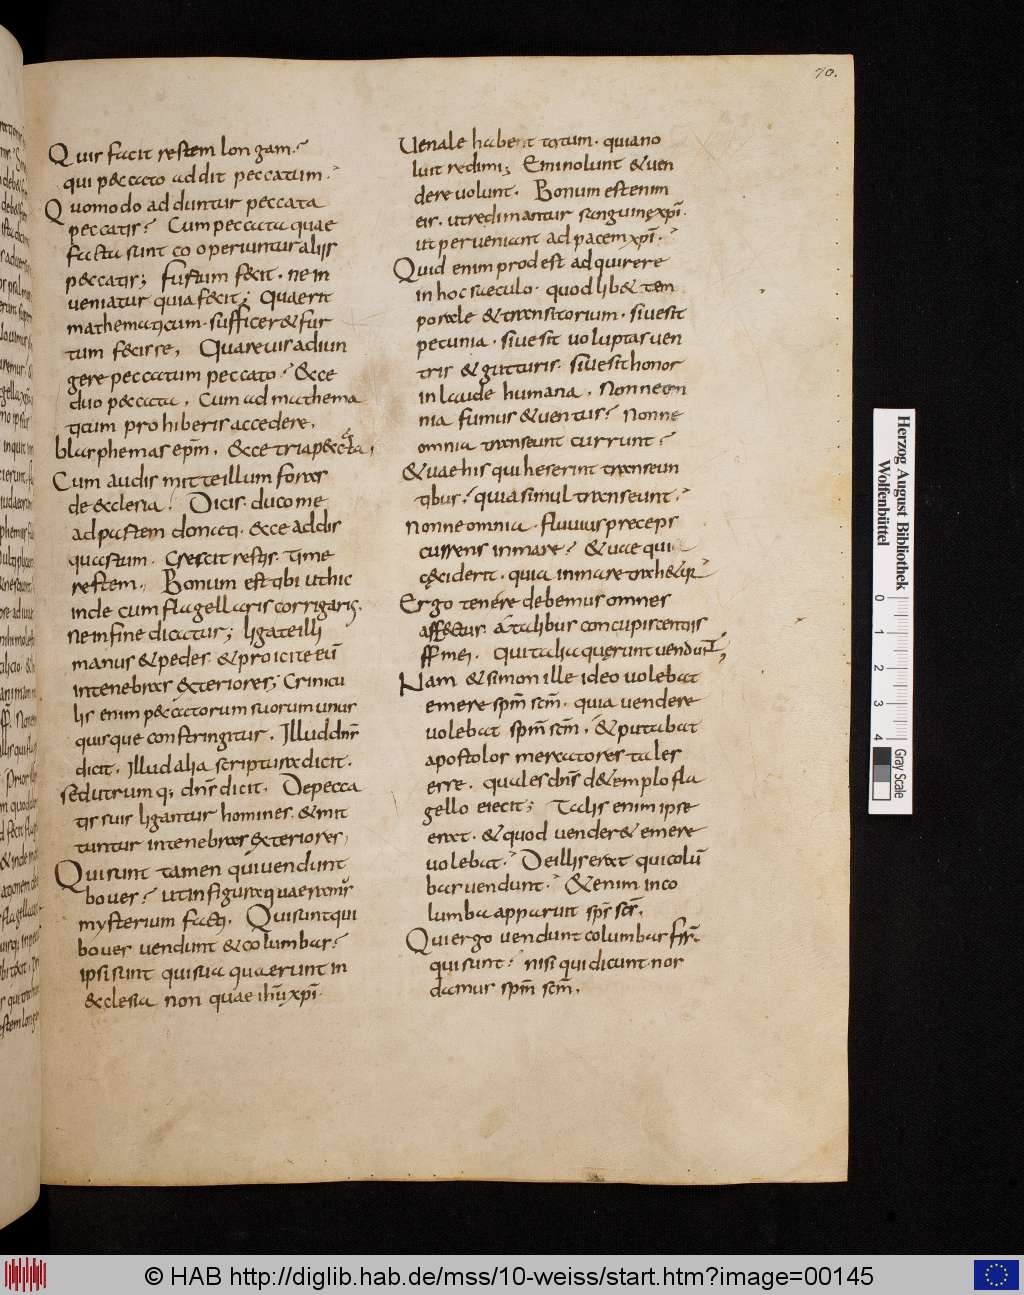 70.
Quis facit restem longam?
qui peccato addit peccatum.
Quomodo adduntur peccata
peccatis? Cum peccata quae
facta sunt cooperiuntur aliis
peccatis; furtum fecit. ne in
veniatur quia fecit; Quaerit
mathematicum. sufficeret fur
tum fecisse, Quare vis adiun
gere peccatum peccato? Ecce
duo peccata. Cum ad mathema
ticum prohiberis accedere.
blasphemas epm. Ecce tria peccata;
Cum audis mitte illum foras
de ecclesia? Dicis. duco me
ad partem donati. ecce addis
quartum. Crescit restis. time
restem. Bonum est tibi ut hic
inde cum flagellaris corrigaris.
ne in fine dicatur; ligate illi
manus & pedes. & proicite eū
in tenebras exteriores; Crinicu
lis enim peccatorum suorum unus
quisque constringitur. Illud dns
dicit. Illud alia scriptura dicit.
sed utrumq; dns dicit. De pecca
tis suis ligantur homines. & mit
tuntur in tenebras exteriores,
Qui sunt tamen qui vendunt
boves? ut in figura quaeramus
mysterium facti. Qui sunt qui
boves vendunt & columbas?
ipsi sunt qui sua quaerunt in
ecclesia non quae ihu xpi.
Venale habent totum. quia no
lunt redimi; Emi nolunt & ven
dere volunt. Bonum est enim
eis. ut redimantur sanguine xpi.
ut perveniant ad pacem xpi.
Quid enim prodest adquirere
in hoc saeculo. quodlibet tem
porale & transitorium. sive sit
pecunia. sive sit voluptas ven
tris & gutturis. sive sit honor
in laude humana. Nonne om
nia fumus & ventus? Nonne
omnia transeunt currunt?
& vae his qui heserint transeun
tibus? quia simul transeunt.
Nonne omnia. fluvius preceps
currens in mare? & vae qui
ceciderit. quia in mare trahetur
Ergo tenere debemus omnes
affectus. a talibus concupiscentiis
ff mei. Qui talia querunt vendunt;
Nam & simon ille ideo volebat
emere spm scm. quia vendere
volebat spm scm. & putabat
apostolos mercatores tales
esse. quales dns de templo fla
gello eiecit; Talis enim ipse
erat. & quod vendere emere
volebat. De illis erat qui colū
bas vendunt. Etenim in co
lumba apparuit sps scs.
Qui ergo vendunt columbas frs.
qui sunt? nisi qui dicunt. nos
damus spm scm.
Herzog August Bibliothek
Wolfenbüttel
0 1 2 3 4
Gray Scale
© HAB http://diglib.hab.de/mss/10-weiss/start.htm?image=00145